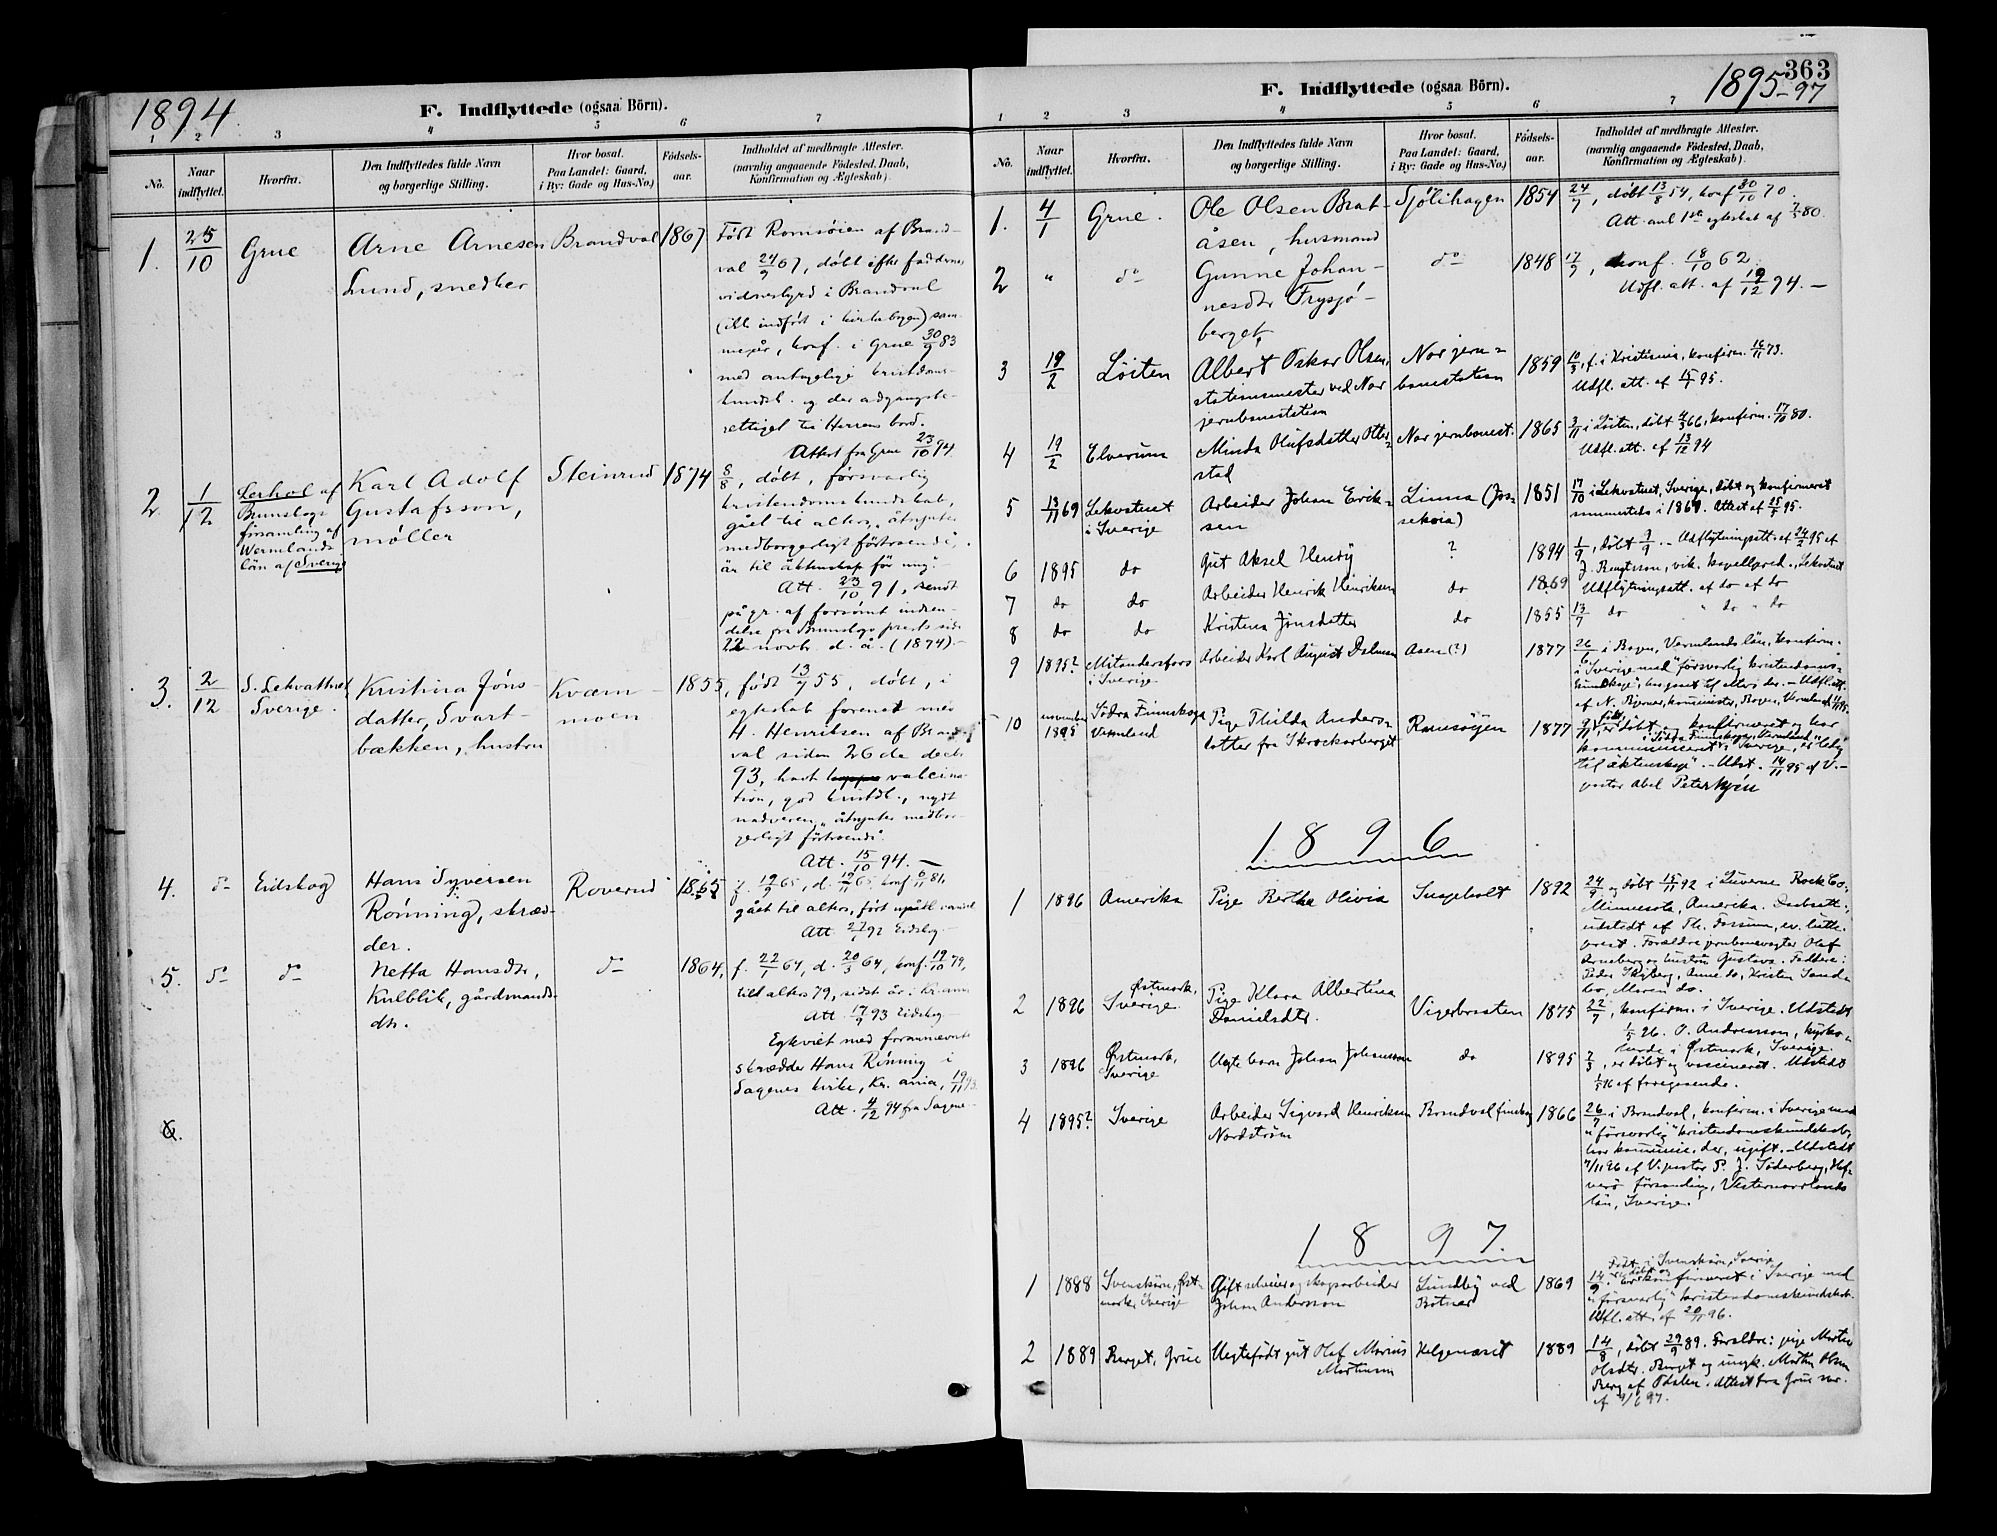 1894
F. Indflyttede (ogsaa Börn).
1 2 3 4 5 6 7
No.
Naar indflyttet.
Hvorfra.
Den Indflyttedes fulde Navn
og borgerlige Stilling.
Hvor bosat.
Paa Landet: Gaard,
i By: Gade og Hus-No.)
Fødsels-
aar.
Indholdet af medbragte Attester.
(navnlig angaaende Födested, Daab,
Konfirmation og Ægteskab).
1. 25/10 Grue
Arne Arnesen
Lund, snedker
Brandval 1867
Født Romsöien af Brand-
val 24/9 67, döbt efter faddernes
vidnesbyrd i Brandval
(ikke indfört i kirkebogen) sam-
me år, konf. i Grue 30/9 83
med antagelige kristdoms-
kundsk. og der adgangsbe-
rettiget til Herrens bord.
Attest fra Grue 23/10 94.
2 1/12
Lerhol af
Brunskogs
församling af
Wermlands
län af Sverige
Karl Adolf
Gustafsson,
møller
Steinrud 1874
8/8, döbt, försvarlig
kristendomskundskab,
gået til alters, "åtnjuter
medborgerligt förtroende,
är til äktenskap för ung".
Att. 23/10 91, sendt
på gr. af forsömt indsen-
delse fra Brunskogs prests side
22 novbr. d. å. (1894).-
3. 2/12
S. Lekvattnet
Sverige.
Kristina Jöns-
datter, Svart-
bækken, hustru
Kværn-
moen
1855, födt 13/7 55, döbt, i
egteskab forenet med
H. Henriksen af Brand-
val siden 26de decbr
93, havt vakcina-
tion, god kristdk., nydt
nadveren, "åtnjuter medbor-
gerligt förtroende".
Att. 15/10 94.-
4. do Eidskog
Hans Syversen
Rönning, skræd-
der.
Roverud 1865
f. 19/9 65, d. 19/11 65, konf. 6/11 81,
gået til alters, fört upåkl. vandel
Att. 27/7 92 Eidskog.-
5. do do
Netta Hansdtr,
Kulblik, gårdmands-
dtr.
do 1864,
f. 22/1 64, d. 20/3 64, konf. 19/10 79,
til alters 79, sidst år i Kr.ania
Att. 17/9 93 Eidskog-
Egteviet med fornævnte
skrædder Hans Rönning i
Sagenes kirke, Kr. ania, 19/11 93.
Att. 4/12 94 fra Sagene-
6.
363
1895-97
F. Indflyttede (ogsaa Börn).
1 2 3 4 5 6 7
No.
Naar
indflyttet.
Hvorfra.
Den Indflyttedes fulde Navn
og borgerlige Stilling.
Hvor bosat.
Paa Landet: Gaard,
i By: Gade og Hus-No.)
Födsels-
aar.
Indholdet af medbragte Attester.
(navnlig angaaende Fødested, Daab,
Konfirmation og Ægteskab).
1. 4/1 Grue.
Ole Olsen Brat-
åsen, husmand
Sjölihagen 1854
24/7, döbt 13/8 54, konf 30/10 70.
Att. anl 1ste egteskab af 7/5 80.
2 " do
Gunne Johan-
nesdtr Frysjö-
berget,
do 1848
17/9, konf. 18/10 62
Udfl. att. af 19/12 94.-
3 19/2 Löiten
Albert Oskar Olsen,
stationsmester ved Nor
jernbanestation
Nor jern-
banestation
1859
10/3, f. i Kristiania, konfirm. 16/11 73.
Udfl. att. af 15/1 95.
4 19/2 Elverum
Minda Olufsdatter Otter-
stad
Nor jernbanest. 1865
3/11 i Löiten, döbt 4/3 66, konfirm. 17/10 80.
Udfl. att. af 13/12 94
5 13/11 69
Lekvatnet
i Sverige
Arbeider Johan Erik-
sen
Linna
1851
17/10 i Lekvatnet, Sverige, döbt og konfirmeret
sammesteds i 1867. Attest af 25/5 95.
6 1895 do Gut Aksel Henry ? 1894
1/9, döbt 9/9. - Udflytningsatt. af 24/2 95 af
J. Bengtsson, vik. kapellpred., Lekvatnet
7 do do Arbeider Henrik Henriksen do 1869 Udflytningsatt. af do af do
8 do do Kristina Jönsdatter do 1855 13/7 do " do " do
9 1895?
Mitandersfors
i Sverige
Arbeider Karl August Dalman Åsen(?) 1877
26/6 i Bogen, Vermlands län, konfirm.
i Sverige med "försvarlig kristendoms-
kundskap", har gaaet til alters der. - Udfl. att.
af N. Bjerner, komminister, Bogen, Vermland
10 november
1895
Södra Finnskoga
Vermland
Pige Thilda Anders-
datter fra Skrockarberget
Ramsöyen 1877
9/11, er döbt og konfirmeret og har
i Södra Finnskoga, Vermland
kommuniceret i Sverige, er "ledig
til äktenskap". - Udst. 14/11 95 af V.-
pastor Abel Peterkjén
1896
1 1896 Amerika Pige Bertha Olivia Ingeholt 1892
24/9 og döbt 15/11 92 i Luverne Rock Co.,
Minnesota, Amerika. Daabsatt.,
udstedt af Th. Fossum, ev. luth.
prest. Forældre jernbanevogter Olaf
Arneberg og hustru Gustava. Faddere:
Peder Skyberg, Anne do, Kristen Sand-
bo, Maren do.
2 1896
Østmark,
Sverige
Pige Klara Albertina
Danielsdtr.
Vigerbraaten 1875
22/7, konfirm. i Sverige. Udstedt
1/5 96. O. Andreasson, kyrko-
herde i Østmark, Sverige.
3 1896
Østmark,
Sverige
Uegte barn Johan Johansson do 1895
7/3, er döbt og vaccineret. Udstedt
1/5 96 af foregaaende.
4 1895? Sverige
Arbeider Sigvard Henriksen
Nordström
Brandval finskog 1866
26/7 i Brandval, konfirm. i Sverige med
"försvarlig" kristendomskundskab,
har kommunic. der, ugift. - Udstedt
7/11 96 af V. pastor P. J. Söderberg, Haf-
verö församling, Vesternorrlands
län, Sverige.
1897.
1 1888
Svenskörn, Øst-
mark, Sverige
Gift selveier og skogsarbeider
Johan Andersson
Lundby ved
Botner
1869
Födt i Svenskörn, Sverige
14/9. Er döbt og konfirmeret i Sverige med
"försvarlig" kristendomskundskab.
Udfl. att. af 20/11 96.
2 1889 Berget, Grue
Uegtefödt gut Olaf Marius
Martinsen
Helgenæset 1889
14/8, döbt 29/9 89. Forældre: pige Marthe
Olsdtr. Berget og ungk. Martin Olsen
Berg af Odalen. Attest fra Grue
af 9/6 97.